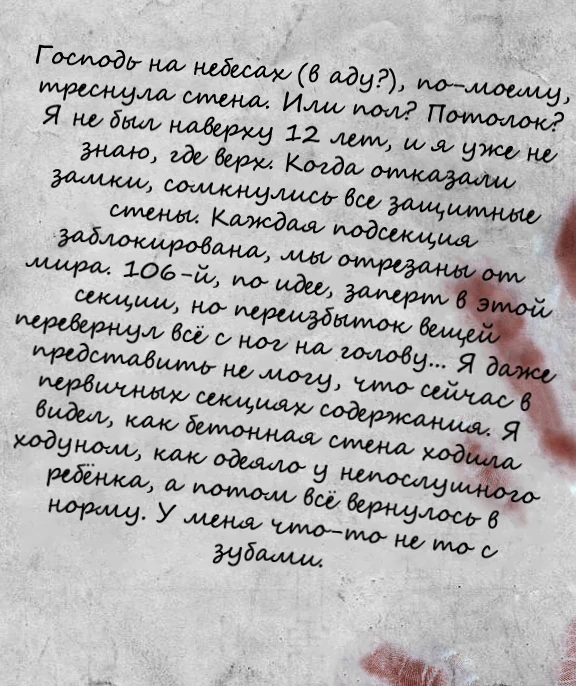 Господь на небесах (в аду?), по-моему,
треснула стена. Или пол? Потолок?
Я не был наверху 12 лет, и я уже не
знаю, где верх. Когда отказали
замки, сомкнулись все защитные
стены. Каждая подсекция
заблокирована, мы отрезаны от
мира. 106-й, по идее, заперт в этой
секции, но переизбыток вещей
перевернул всё с ног на голову... Я даже
представить не могу, что сейчас в
первичных секциях содержания. Я
видел, как бетонная стена ходила
ходуном, как одеяло у непослушного
ребёнка, а потом всё вернулось в
норму. У меня что-то не то с
зубами.